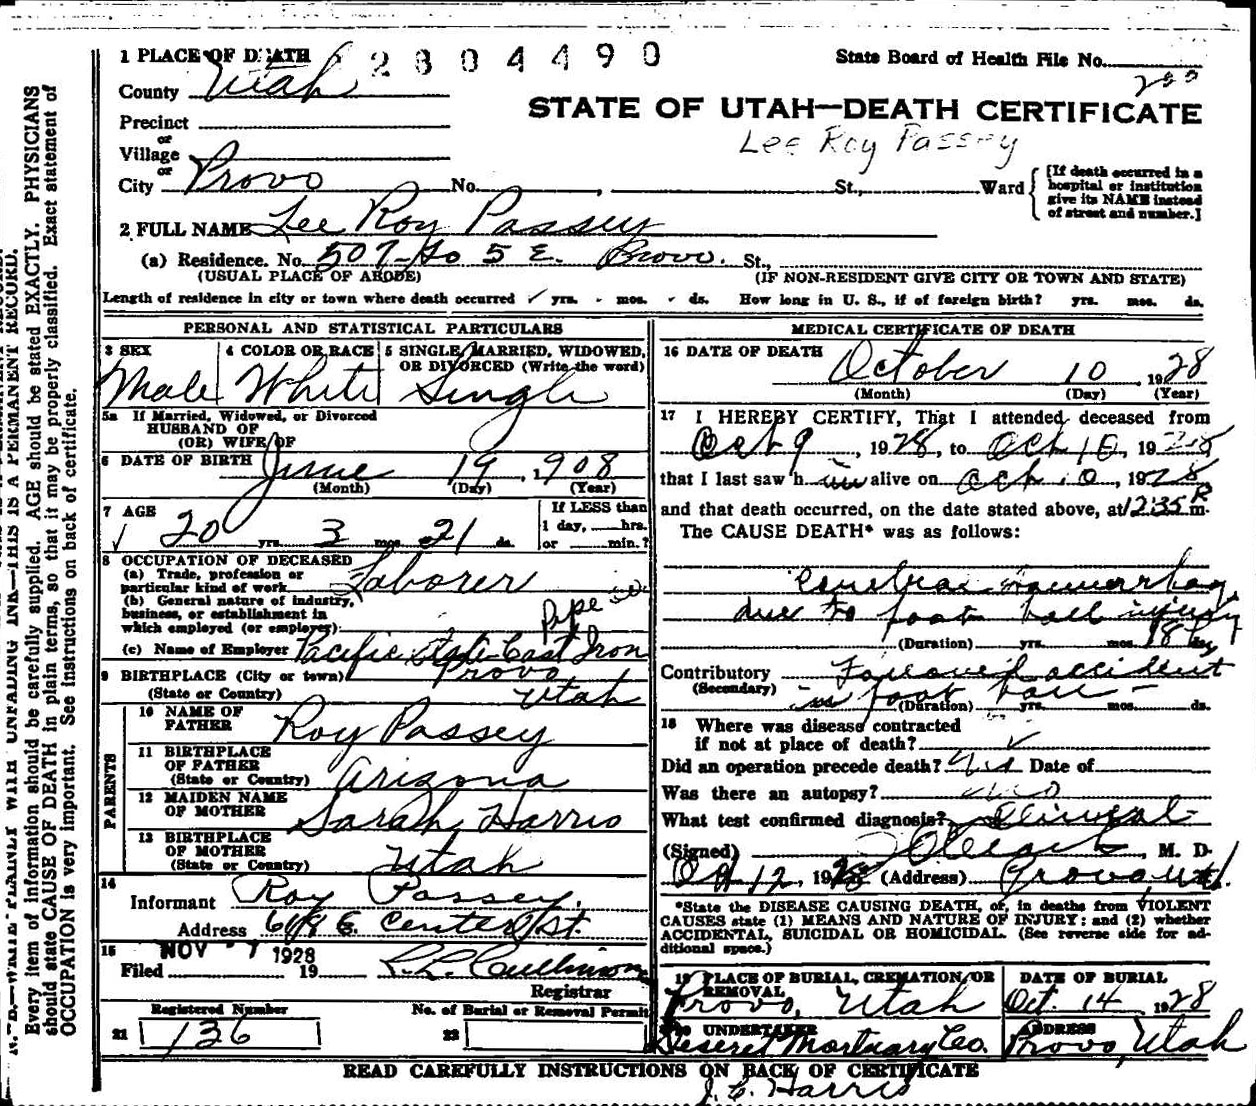 1 PLACE OF DEATH
2804490
State Board of Health File No.
200
County Utah
STATE OF UTAH—DEATH CERTIFICATE
Precinct
Lee Roy Passey
or
Village
or
City Provo No. , St., Ward
[If death occurred in a hospital or institution give its NAME instead of street and number.]
2 FULL NAME Lee Roy Passey
(a) Residence. No. 507 So 5 E. Provo. St.,
(USUAL PLACE OF ABODE) (IF NON-RESIDENT GIVE CITY OR TOWN AND STATE)
Length of residence in city or town where death occurred yrs. mos. ds. How long in U. S., if of foreign birth? yrs. mos. ds.
PERSONAL AND STATISTICAL PARTICULARS
3 SEX Male
4 COLOR OR RACE White
5 SINGLE, MARRIED, WIDOWED, OR DIVORCED (Write the word) Single
5a If Married, Widowed, or Divorced
HUSBAND OF
(OR) WIFE OF
6 DATE OF BIRTH June 19, 1908
(Month) (Day) (Year)
7 AGE 20 yrs. 3 mos. 21 ds.
If LESS than
1 day, hrs.
or min.?
8 OCCUPATION OF DECEASED
(a) Trade, profession or
particular kind of work Laborer
(b) General nature of industry,
business, or establishment in
which employed (or employer) Pipe
(c) Name of Employer Pacific State Cast Iron
9 BIRTHPLACE (City or town) Provo
(State or Country) Utah
PARENTS
10 NAME OF
FATHER Roy Passey
11 BIRTHPLACE
OF FATHER
(State or Country) Arizona
12 MAIDEN NAME
OF MOTHER Sarah Harris
13 BIRTHPLACE
OF MOTHER
(State or Country) Utah
14
Informant Roy Passey.
Address E. Center St.
15 NOV 1928
Filed 19
Registrar
Registered Number
21 136
No. of Burial or Removal Permit
22
MEDICAL CERTIFICATE OF DEATH
16 DATE OF DEATH October 10, 1928
(Month) (Day) (Year)
17 I HEREBY CERTIFY, That I attended deceased from
Oct 9, 1928, to Oct 10, 1928
that I last saw him alive on Oct 10, 1928
and that death occurred, on the date stated above, at 12:35 P m.
The CAUSE DEATH* was as follows:
Cerebral
due to foot ball injury
(Duration) yrs. mos. 18 ds.
Contributory accident
(Secondary) in foot ball
(Duration) yrs. mos. ds.
18 Where was disease contracted
if not at place of death?
Did an operation precede death? Date of
Was there an autopsy? no
What test confirmed diagnosis? Clinical
(Signed) , M. D.
Oct 12, 1928 (Address) Provo, Utah.
*State the DISEASE CAUSING DEATH, or, in deaths from VIOLENT
CAUSES state (1) MEANS AND NATURE OF INJURY; and (2) whether
ACCIDENTAL, SUICIDAL OR HOMICIDAL. (See reverse side for ad-
ditional space.)
19 PLACE OF BURIAL, CREMATION OR
REMOVAL
Provo, Utah
DATE OF BURIAL
Oct. 14, 1928
20 UNDERTAKER
Deseret Mortuary Co.
ADDRESS
Provo, Utah
READ CAREFULLY INSTRUCTIONS ON BACK OF CERTIFICATE
J. C. Harris
N. B.—WRITE PLAINLY WITH UNFADING INK—THIS IS A PERMANENT RECORD.
Every item of information should be carefully supplied. AGE should be stated EXACTLY. PHYSICIANS
should state CAUSE OF DEATH in plain terms, so that it may be properly classified. Exact statement of
OCCUPATION is very important. See instructions on back of certificate.